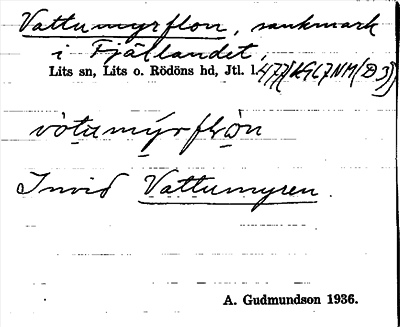 Vattumyrflon, sankmark
i Fjällandet,
Lits sn, Lits o. Rödöns hd, Jtl. l.
vòtumýrflòn
Invid Vattumyren.
A. Gudmundson 1936.